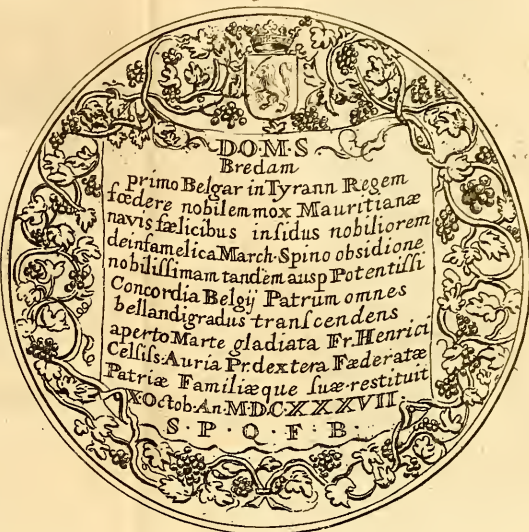 D·O·M·S
Bredam
primo Belgar in Tyrann Regem
fœdere nobilem mox Mauritianæ
navis fælicibus insidus nobiliorem
deinfamelica March·Spino obsidione
nobilissimam tandem ausp Potentissi
Concordia Belgij Patrum omnes
bellandigradus transcendens
aperto Marte gladiata Fr. Henrici
Celsiss·Auria Pr. dextera Fæderatæ
Patriæ Familiæque suæ·restituit
X Octob·An·M·D·C·XXXVII·
S·P·Q·F·B·